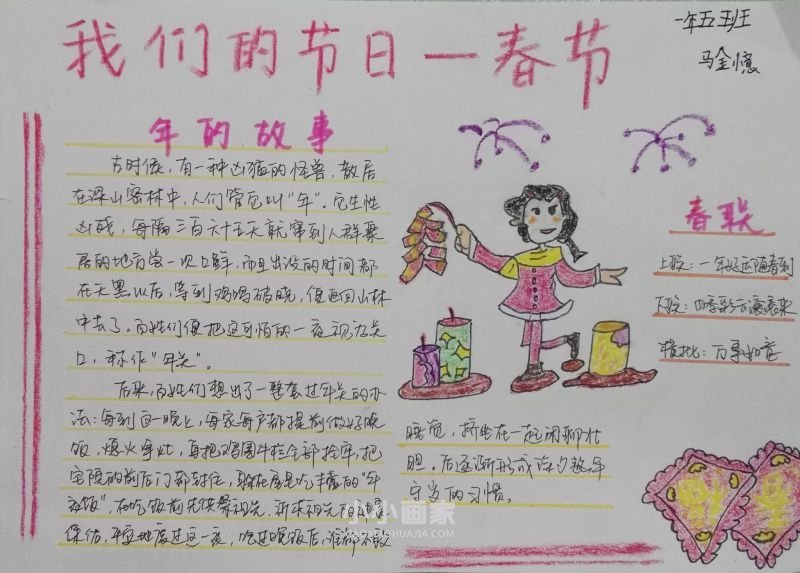 我们的节日—春节
一年五班
马金憶
年的故事
古时候,有一种凶猛的怪兽,散居
在深山密林中,人们管它叫"年"。它生性
凶残,每隔三百六十五天就窜到人群聚
居的地方尝一次口鲜,而且出没的时间都
在天黑以后,等到鸡鸣破晓,便返回山林
中去了。百姓们便把这可怕的一夜视为关
口,称作"年关"。
后来,百姓们想出了一整套过年关的办
法:每到这一晚上,每家每户都提前做好晚
饭,熄火净灶,再把鸡圈牛栏全部拴牢,把
宅院的前后门都封住,躲在屋里吃丰盛的"年
夜饭",在吃饭前先供祭祖先,祈求祖先的神灵
保佑,平安地度过这一夜,吃过晚饭后,谁都不敢
睡觉,挤坐在一起闲聊壮
胆。后逐渐形成除夕熬年
守岁的习惯。
春联
上联:一年好运随春到
下联:四季彩云滚滚来
横批:万事如意
小小画家
XIAOXIAOHUAJIA.COM